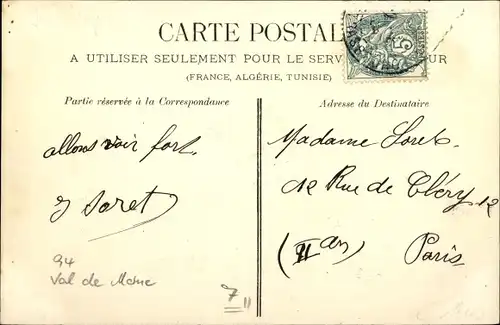 CARTE POSTALE
A UTILISER SEULEMENT POUR LE SERV UR
(FRANCE, ALGÉRIE, TUNISIE)
Partie réservée à la Correspondance
Adresse du Destinataire
allons voir fort
Soret
Madame Soret
12 Rue de Cléry 12
(II arr)
Paris
94
Val de Marne
7